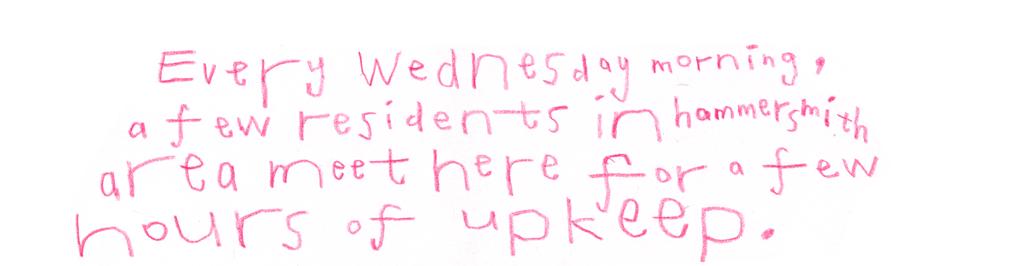 Every Wednesday morning,
a few residents in hammersmith
area meet here for a few
hours of upkeep.